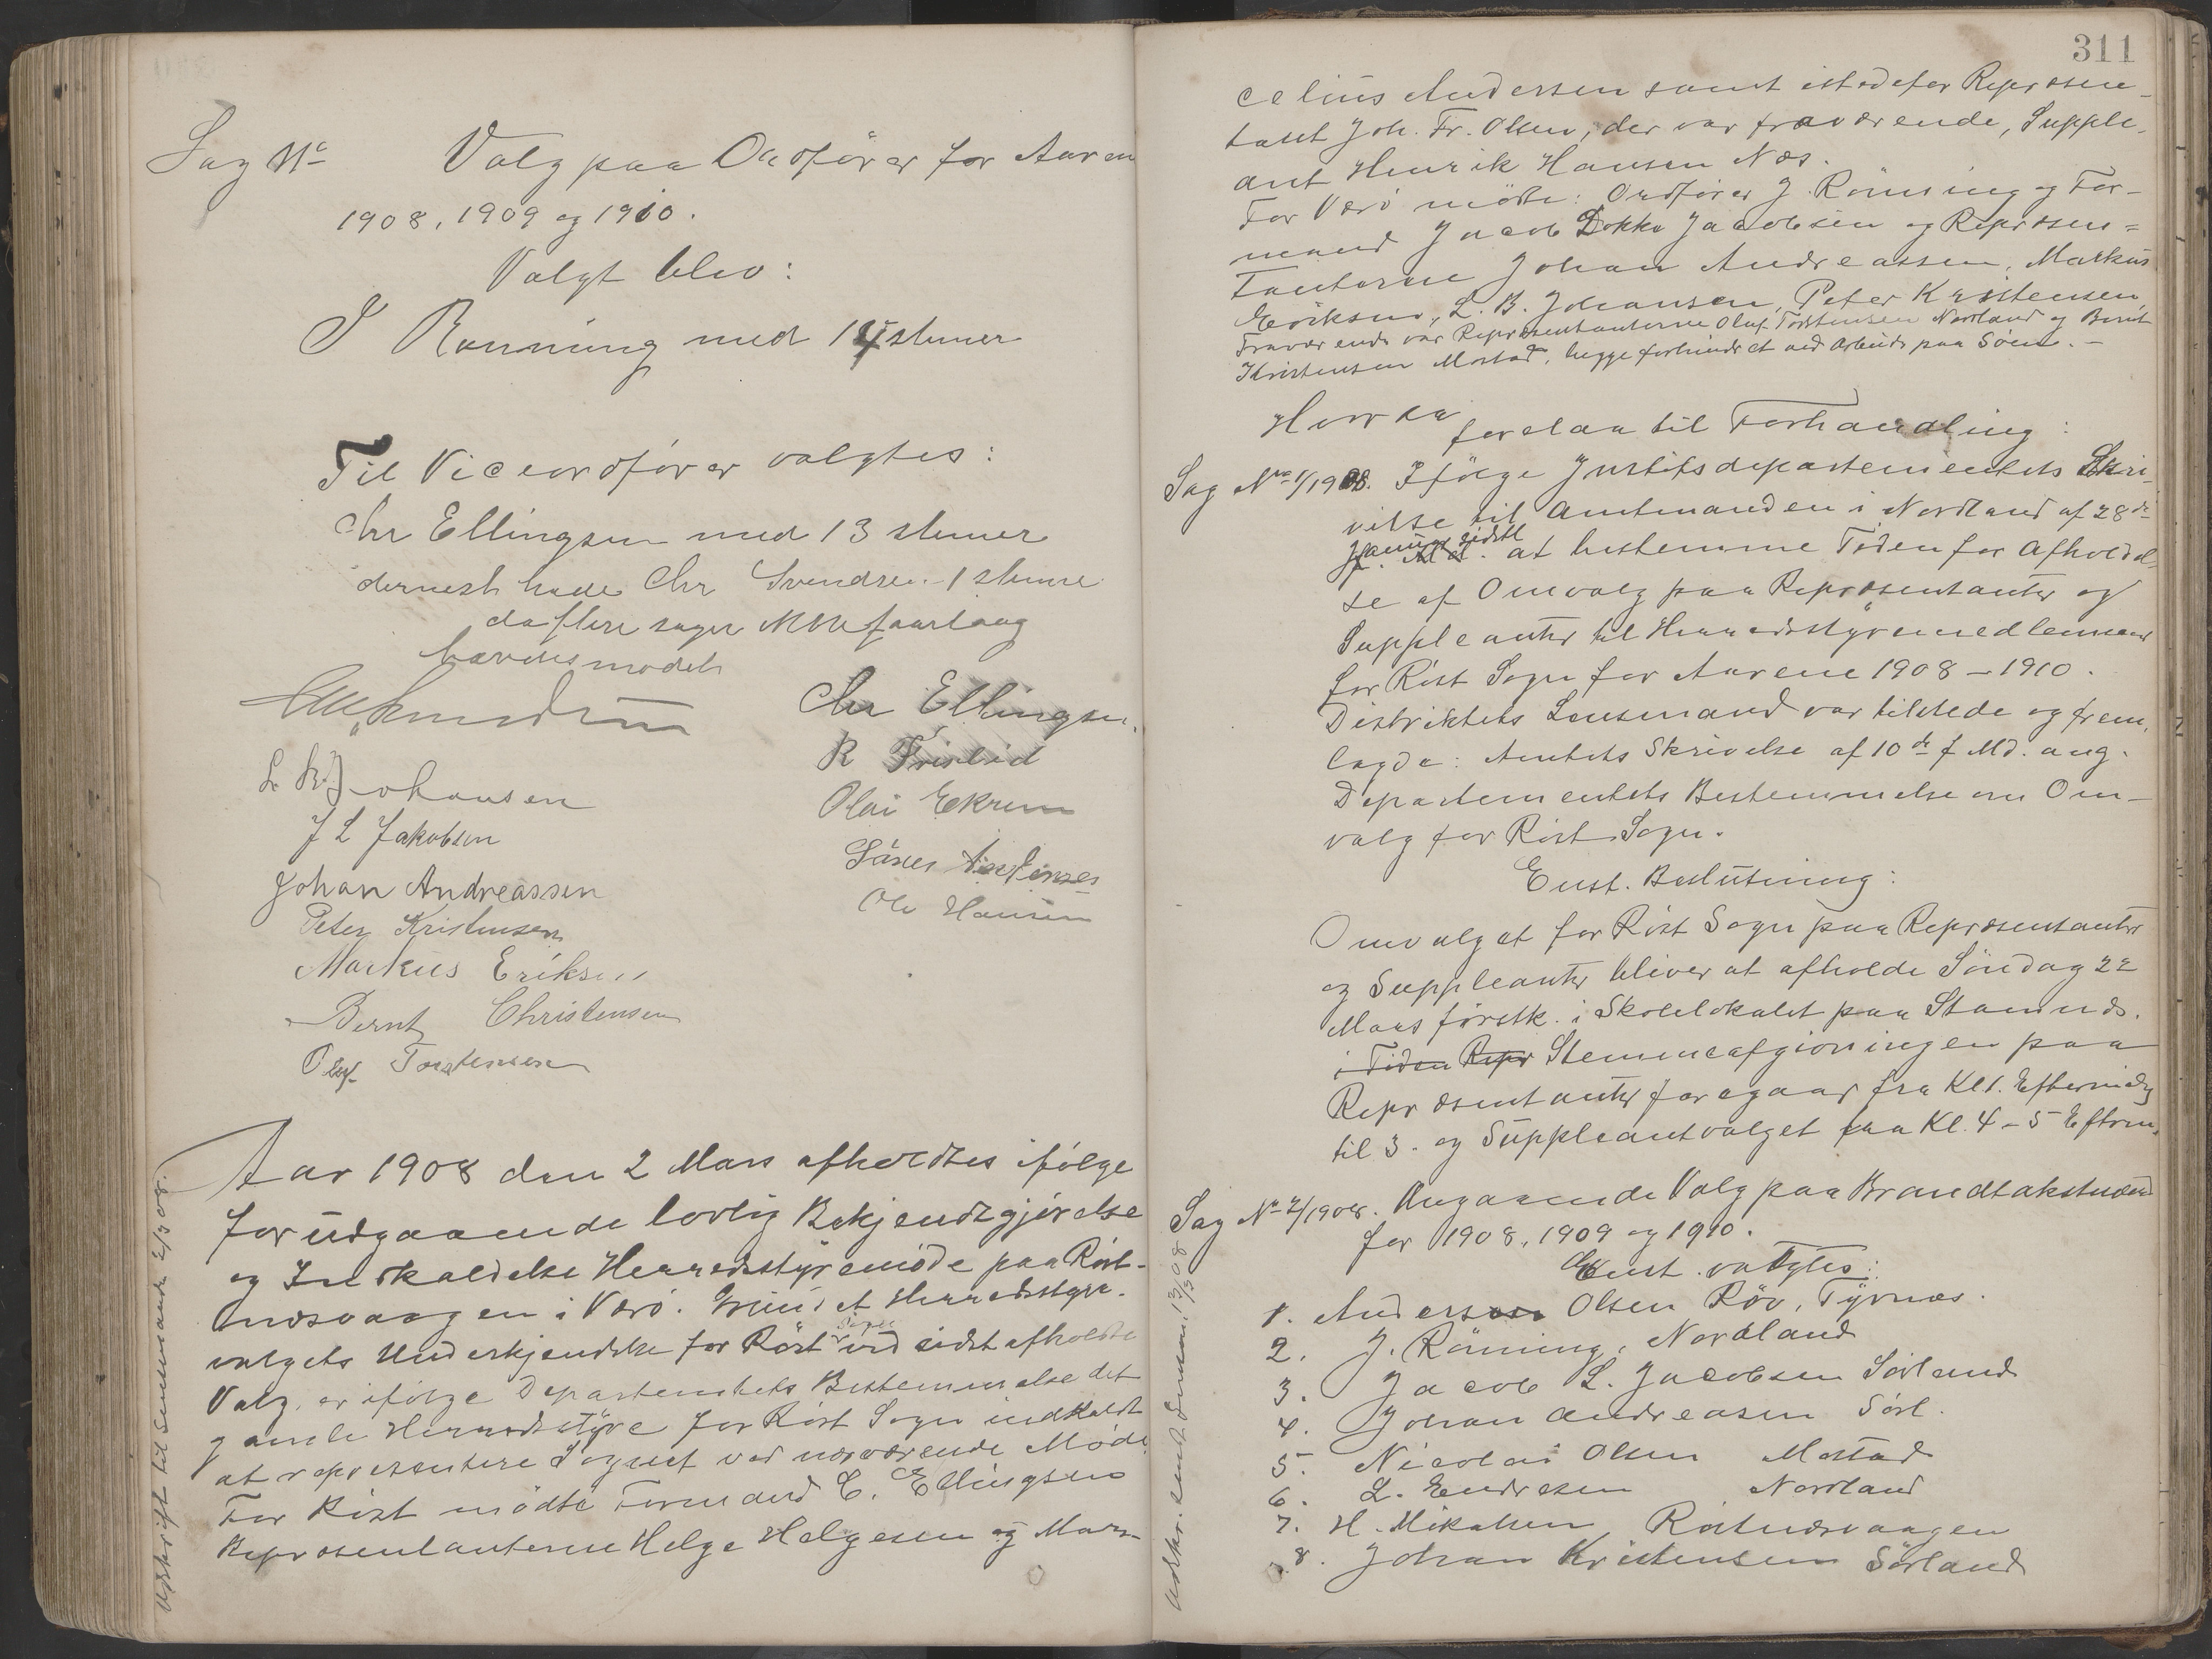 Sag No Valg paa Ordfører for Aaren
1908, 1909 og 1910.
Valgt blev:
J Rønning med 14 stemer
Til Viceordfører valgtes:
Chr Ellingsen med 13 stemer
dernest hade Chr Svendsen 1 stemme
da flere sager ikke forelaag
hævedes mødet
Chr Ellingsen
L B Johansen
R Fristid
J L Jakobsen
Olai Ekrem
Johan Andreassen
Peter Kristensen
Ole Hansen
Markus Eriksen
Bernt Christensen
Oluf Torstensen
Aar 1908 den 2 Mars afholdtes ifølge
forudgaaende lovlig Bekjendtgjørelse
og Indkaldelse Herredsstyremøde paa Røst-
næsvaagen i Værø. Grundet Herredsstyre-
valgets Underkjendelse for Røst Sogn ved sidst afholdte
Valg, er ifølge Departementets Bestemmelse det
gamle Herredsstyre for Røst Sogn indkaldt
at repræsentere Sognet ved nærværende Møde.
For Røst mødte Formand C. Ellingsen
Repræsentanterne Helge Helgesen og Mar-
Udskrift til Lensmand 2/3 08.
311
celius Andersen samt istedefor Repræsen-
tant Joh. Fr. Olsen, der var fraværende, Supple-
ant Henrik Hansen Næs.
For Værø mødte: Ordfører J. Rønning og For-
mand Jacob Jacobsen og Repræsen=
tanterne Johan Andreassen, Markus
Eriksen, L. B. Johansen, Peter Kristensen,
Fraværende var Repræsentanterne Oluf Torstensen Nordland og Bernt
Kristensen Mostad, begge forhindret ved Arbeide paa Søen. -
Hvorda
forelaa til Forhandling:
Sag No 1/1908. Ifølge Justitsdepartementets Skri-
velse til Amtmanden i Nordland af 28de
Januar sidstl. at bestemme Tiden for Afholdel-
se af Omvalg paa Repræsentanter og
Suppleanter til Herredsstyremedlemmer
for Røst Sogn for Aarene 1908-1910.
Distriktets Lensmand var tilstede og frem-
lagde: Amtets Skrivelse af 10de f. Md. ang.
Departementets Bestemmelse om Om-
valg for Røst Sogn.
Enst. Beslutning:
Omvalget for Røst Sogn paa Repræsentanter
og Suppleanter bliver at afholde Søndag 22
Mars førstk. i Skolelokalet paa
i Tiden Repr Stemmeafgivningen paa
Repræsentanter foregaar fra Kl 1. Eftermidag
til 3. og Suppleantvalget fra Kl. 4-5 Efterm.
Sag No 2/1908. Angaaende Valg paa Brandtakstmænd
for 1908, 1909 og 1910.
Enst. valgtes:
1. Anders Olsen Røv, Tyvnæs.
2. J. Rønning, Nordland
3. Jacob L. Jacobsen Sørland
4. Johan Andreasen Sørl.
5. Nicolai Olsen Mostad
6. L. Endresen Nordland
7. H. Mikalsen, Røstnæsvaagen
8. Johan Kristensen Sørland
Udskr. sendt 13/3 08